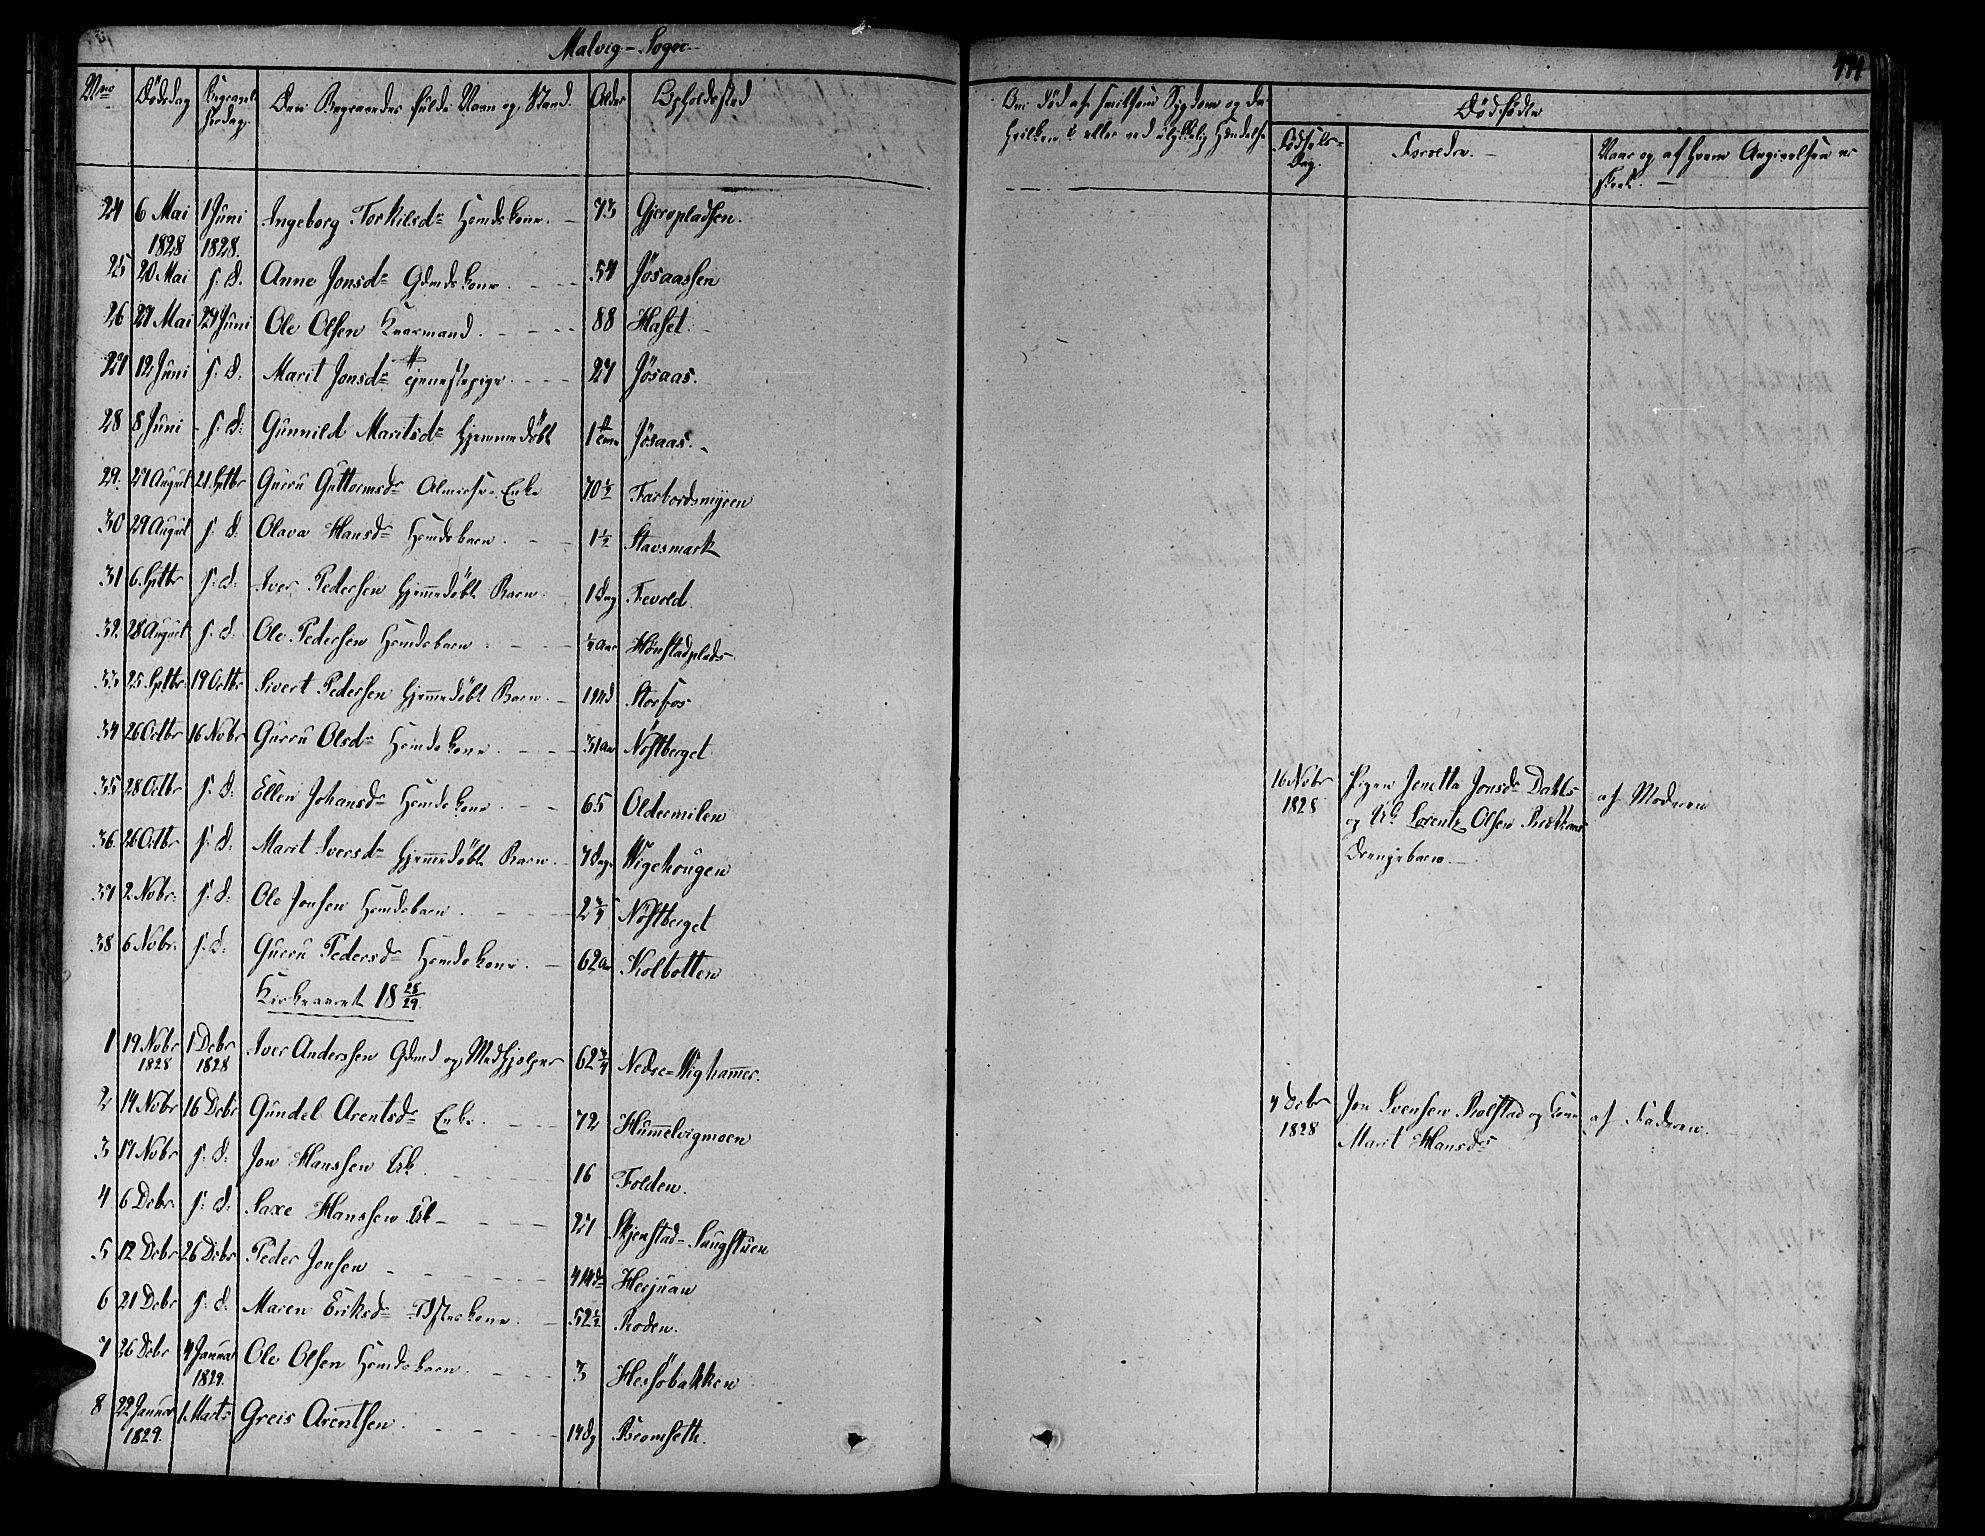 Malvig-Sogn
No Dødsdag Begravelsesdag Den Begravedes fulde Navn og Stand. Alder Opholdssted
Om død af smitsom Sygdom og da hvilken? eller ved ulykkelig Hændelse
Dødfødte
Fødsels-Dag. Forældre. Naar og af hvem Angivelsen er skeet.
24 6 Mai 1828 1 Juni 1828. Ingeborg Torkilsdr Hmdskone 73 Gjeropladsen.
25 20 Mai s. d. Anne Jonsdr Gdmdskone 54 Jøsaassen
26 27 Mai 29 Juni Ole Olsen Kaarmand 88 Haset.
27 12 Juni s. d. Marit Jonsdr Tjenestepige 27 Jøsaas.
28 8 Juni s. d: Gunnild Maritsdr hjemmedøbt 1 Jøsaas.
29. 27 August 21 Sptbr Gurru Guttormsdr Almisse-Enke 70 1/2 Farbordsmyren
30 29 August s. d: Olava Hansdr Hmdsbarn 1 1/2 Stavsmark
31 6 Sptbr s: d: Iver Pedersen hjemmedøbt Barn 1 Dag Fevold.
32. 28 August s. d. Ole Pedersen Hmdsbarn 1/2 Aar Hønstadplads
33 25 Sptbr 19 Octbr Sivert Pedersen hjemmedøbt Barn 1 Md Storfos
34 26 Octbr 16 Nobr Gurru Olsdr Hmdskone 31 Aar Nøstberget
35 28 Octbr s. d. Ellen Johansdr Hmdskone 65 Oldermilen
16 Nobr 1828 Pigen Jenetta Jonsdr Dahls- af Moderen
og Uk: Lorentz Olsen
Drengebarn.
36 26 Octbr s. d. Marit Iversdr hjemmedøbt Barn 7 Dage Wigehougen
37 2 Nobr: s. d: Ole Jonsen Hmdsbarn 2 3/4 Nøstberget
38 6 Nobr. s. d: Gurru Pedersdr Hmdskone 62 Aar Kolbotten
Kirkeaaret 18 28/29.
1 19 Nobr 1828 1 Debr 1828 Iver Anderssen Gdmd og Medhjelper 62 3/4 Nedre=Wighammer.
2 14 Nobr 16 Debr Gundel Arentsdr Enke 72 Hummelvigmoen
7 Debr 1828 Jon Svensen Rolstad og Kone af Faderen.
Marit Hansdr
3 17 Nobr s. d: Jon Hanssen Uk 16 Folden.
4 6 Debr s. d. Saxe Hanssen Uk 27 Skjenstad-Saugstuen
5 12 Debr 26 Debr Peder Jonsen 4 Mdr Herjuan
6 21 Debr s. d. Maren Eriksdr 52 1/2 Roden.
7 26 Debr 4 Januar 1829. Ole Olsen Hmdsbarn 3 Hessøbakken
8 22 Januar 1829. 1 Marts Greis Arentsen 14 Dg Bromseth.